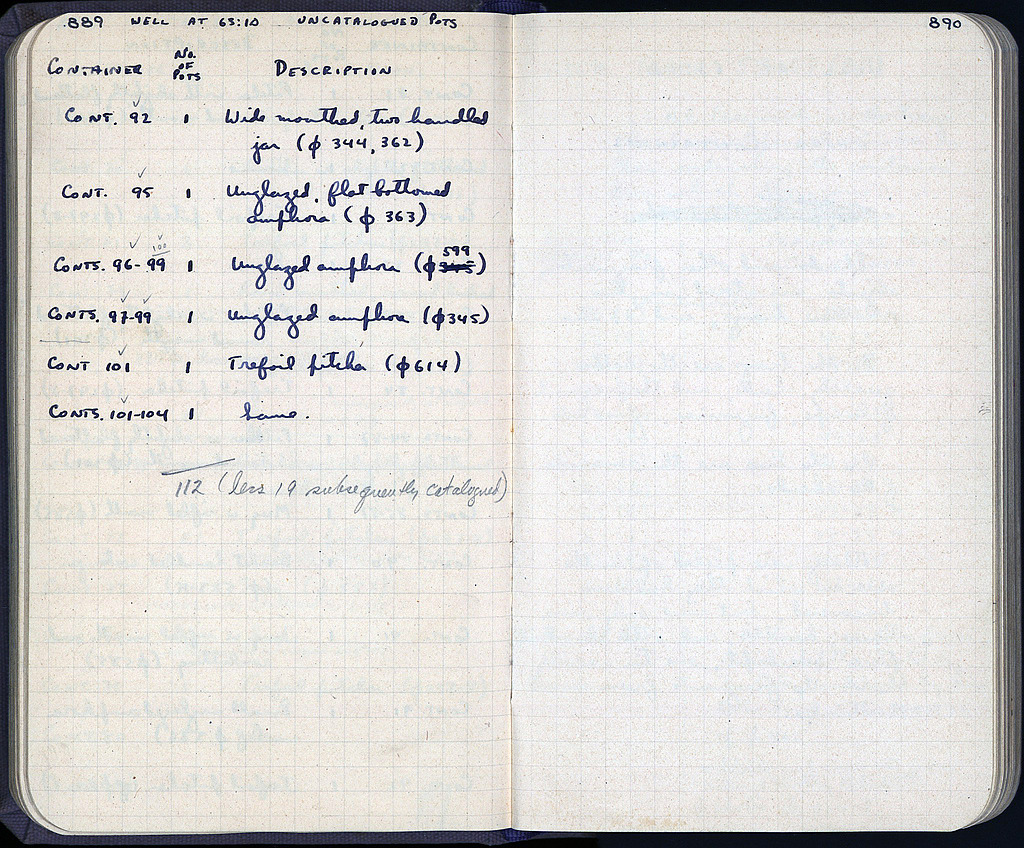 889 WELL AT 63:10 UNCATALOGUED POTS
CONTAINER NO. OF POTS DESCRIPTION
CONT. 92 1 Wide mouthed, two handled
jar (φ 344, 362)
CONT. 95 1 Unglazed, flat bottomed
amphora (φ 363)
100
599
CONTS. 96-99 1 Unglazed amphora (φ 345)
CONTS. 97-99 1 Unglazed amphora (φ345)
CONT 101 1 Trefoil pitcher (φ614)
CONTS. 101-104 1 Same.
112 (less 19 subsequently catalogued)
890